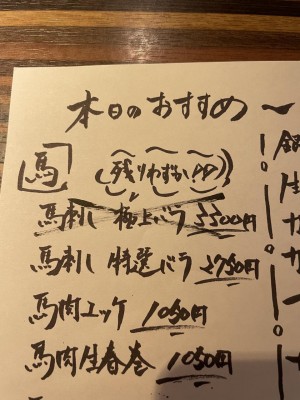 本日のおすすめ
馬
残りわずか!!
馬刺し 極上バラ 3300円
馬刺し 特選バラ 2750円
馬肉ユッケ 1050円
馬肉生春巻 1050円